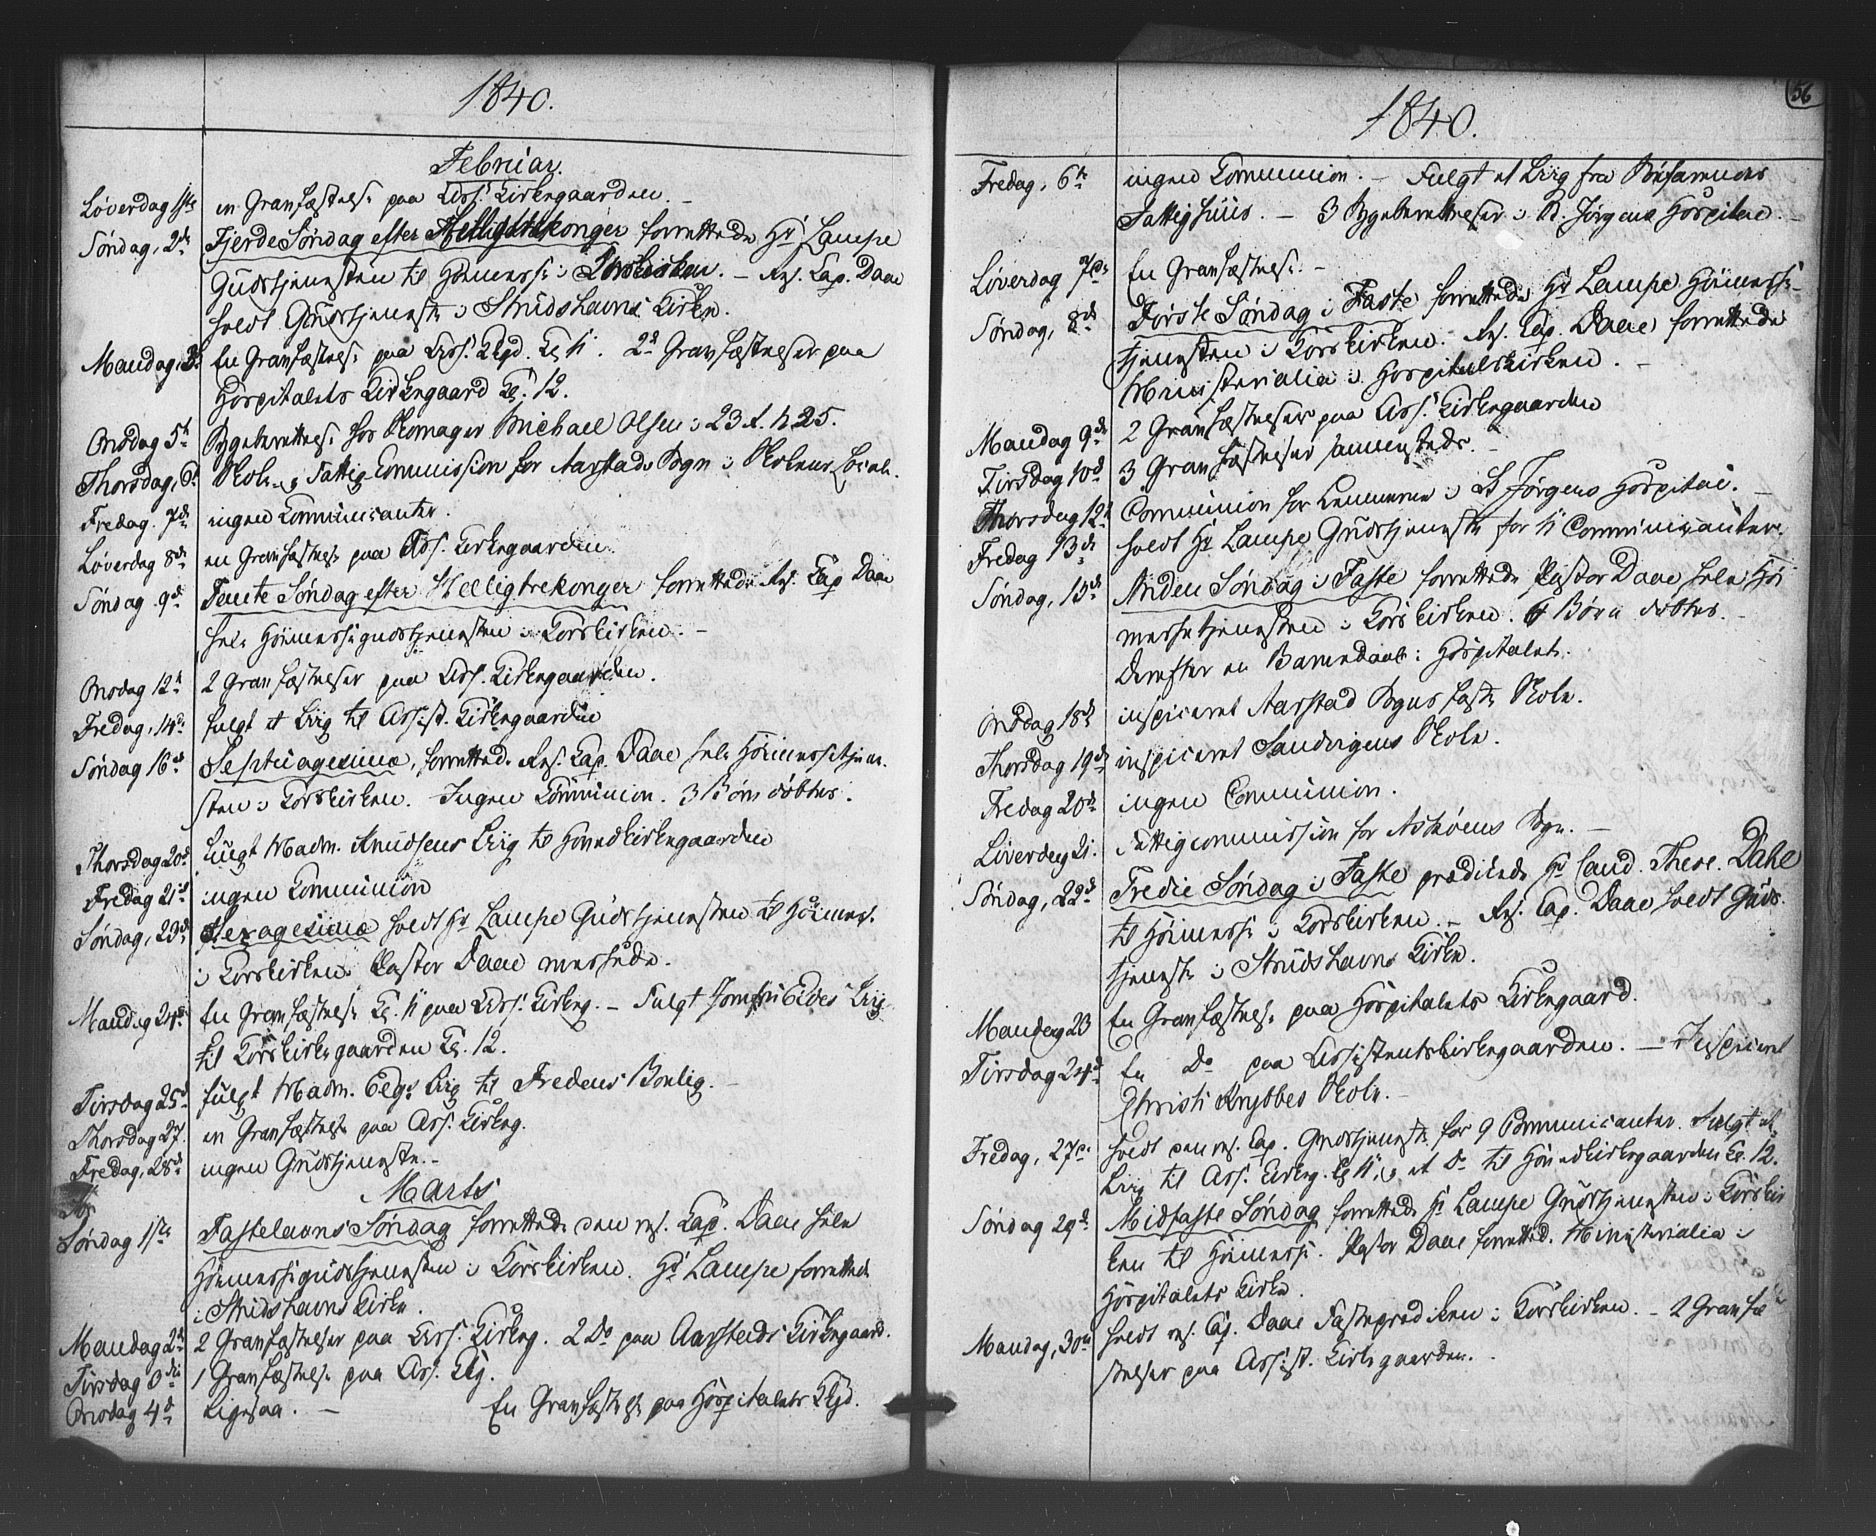 1840.
Februar.
Løverdag 1ste en Gravfæstelse paa Ass. Kirkegaarden. –
Søndag, 2den Fjerde Søndag efter Helligtrekonger forrettede Hr Lampe
Gudstjenesten til Höimesse i Korskirken. – Res. Cap. Daae
holdt Gudstjeneste i Strudshavns Kirke.
Mandag, 3 En Gravfæstelse paa Ass. Kkgd. Kl 11. 2de Gravfæstelser paa
Hospitalets Kirkegaard Kl. 12.
Onsdag 5te Sygeberettelse hos Skomager Michael Olsen i 23 R. N 25.
Thorsdag, 6 Skole- og Fattig-Commission for Aarstads Sogn i Skolens Local.
Fredag 7de ingen Communicanter.
Løverdag 8de en Gravfæstelse paa Ass. Kirkegaarden.
Søndag 9de Femte Søndag efter Helligtrekonger forrettede Res. Cap Daae
hele Höimessegudstjenesten i Korskirken. –
Onsdag 12te 2 Gravfæstelser paa Ass. Kirkegaarden.
Fredag, 14de fulgt et Liig til Assist. Kirkegaarden
Søndag 16de Septuagesima, forrettede Res. Cap. Daae hele Höimessetjene-
sten i Korskirken. Ingen Communion. 3 Børn døbtes.
Thorsdag 20de fulgt Madm. Knudsens Liig til Hovedkirkegaarden
Fredag 21de ingen Communion
Søndag, 23de Sexagesima holdt Hr Lampe Gudstjenesten til Höimes.
i Korskirken. Pastor Daae messede.
Mandag 24de En Gravfæstelse Kl. 11 paa Ass. Kirkeg. – Fulgt Jomfru Eides Liig
til Korskirkegaarden Kl. 12.
Tirsdag 25de fulgt Madm. Liig til Fredens Bolig. –
Thorsdag 27. en Gravfæstelse paa Ass. Kirkeg.
Fredag, 28de ingen Gudstjeneste. –
Marts
Søndag 1ste Fastelavns Søndag forrettede den res. Cap. Daae hele
Höimessegudstjenesten i Korskirken. Hr Lampe forrettede
i Strudshavns Kirke.
Mandag 2den 2 Gravfæstelser paa Ass. Kirkeg. 2 Do paa Aarstads Kirkegaard.
Tirsdag 3die 1 Gravfæstelse paa Ass. Kkg.
Onsdag 4de Ligesaa. – En Gravfæstelse paa Hospitalets Kkgd.
56
1840.
Fredag, 6te ingen Communion. – Fulgt et Liig fra
Fattighuus. – 3 Sygeberettelser i St. Jørgens Hospital. –
Løverdag 7de En Gravfæstelse. –
Søndag, 8de Første Søndag i Faste forrettede Hr Lampe Höimesse-
tjenesten i Korskirken. Res. Cap. Daae forrettede
Ministerialia i Hospitalskirken. –
Mandag 9de 2 Gravfæstelser paa Ass. Kirkegaarden
Tirsdag 10de 3 Gravfæstelser sammesteds. –
Thorsdag 12te Communion for Lemmerne i St Jørgens Hospital. –
Fredag 13de holdt Hr Lampe Gudstjeneste for 11 Communicanter.
Søndag, 15de Anden Søndag i Faste forrettede Pastor Daae hele Höi
messetjenesten i Korskirken. 4 Børn døbtes. –
Derefter en Barnedaab i Hospitalet.
Onsdag 18de inspiceret Aarstad Sogns faste Skole.
Thorsdag 19de inspiceret Sandvigens Skole.
Fredag 20de ingen Communion.
Løverdag 21. Fattigcommission for Askøens Sogn. –
Søndag, 22de Tredie Søndag i Faste prædikede Hr Cand. Theol. Dahl
til Höimesse i Korskirken. – Res. Cap. Daae holdt Guds-
tjeneste i Strudshavns Kirke.
Mandag 23 En Gravfæstelse paa Hospitalets Kirkegaard.
Tirsdag 24de En Do paa Assistentskirkegaarden. – Inspiceret
Christi Krybbes Skole. –
Fredag, 27de holdt den res. Cap. Gudstjeneste for 9 Communicanter. Fulgt et
Liig til Ass. Kirkeg. Kl 11, og et Do til Hovedkirkegaarden Kl. 12.
Søndag 29de Midfaste Søndag forrettede Hr Lampe Gudstjenesten i Korskir
ken til Höimesse. Pastor Daae forrettede Ministerialia i
Hospitalets Kirke.
Mandag, 30te holdt res. Cap. Daae Fasteprædiken i Korskirken. – 2 Gravfæ
stelser paa Assist. Kirkegaarden. –